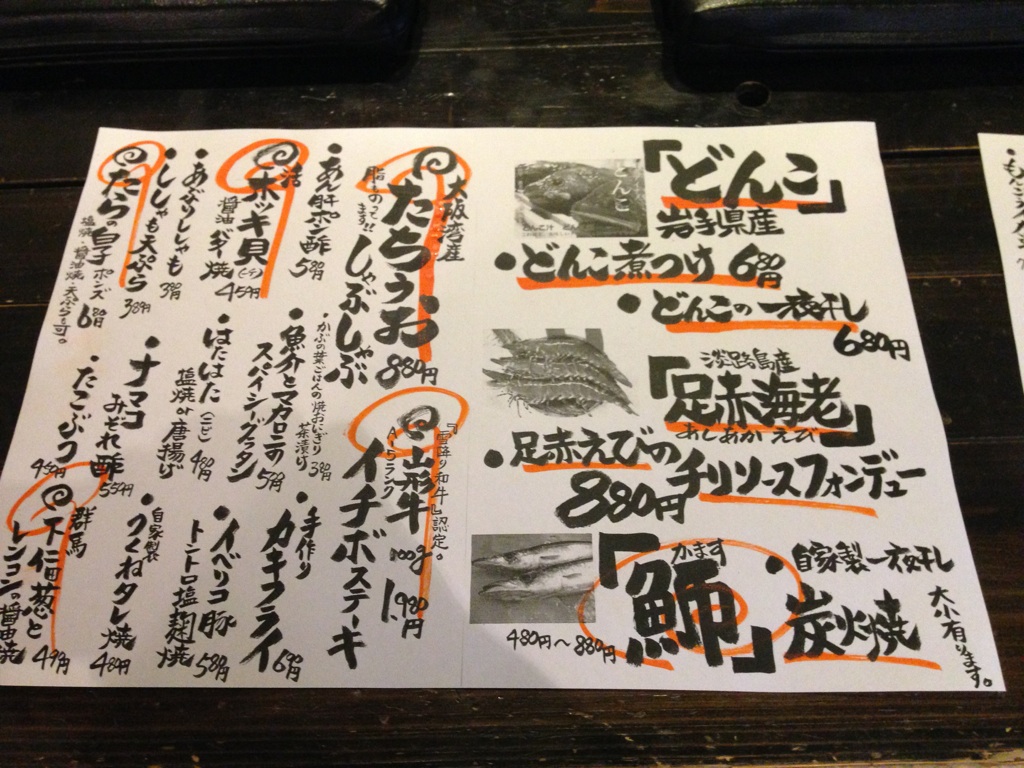 「どんこ」
岩手県産
・どんこ煮つけ 680円
・どんこの一夜干し
680円
どんこ
淡路島産
「足赤海老」
あしあかえび
・足赤えびの
チリソースフォンデュー
880円
かます
「鰤」
480円〜880円
・自家製一夜干し
炭火焼
大小有ります。
大阪湾産
たちうお
しゃぶしゃぶ
脂のってます!!
880円
『雪降り和牛』認定。
山形牛
A-5ランク
イチボステーキ
100g
1.980円
・あん肝ポン酢
580円
・かぶの葉ごはんの焼おにぎり
茶漬け
380円
・手作り
カキフライ
690円
活ホッキ貝
醤油バター焼
・魚介とマカロニの
スパイシーグラタン
580円
・イベリコ豚
トントロ塩麹焼
580円
・あぶりししゃも
380円
・はたはた(二ピ)
塩焼 or 唐揚げ
480円
・自家製
つくねタレ焼
480円
・ししゃも天ぷら
389円
・ナマコ
みぞれ酢
550円
群馬
下仁田葱と
レンコンの醤油焼
499円
たらの白子ポンズ
680円
塩焼・醤油焼・天ぷらも可。
・たこぶつ
450円